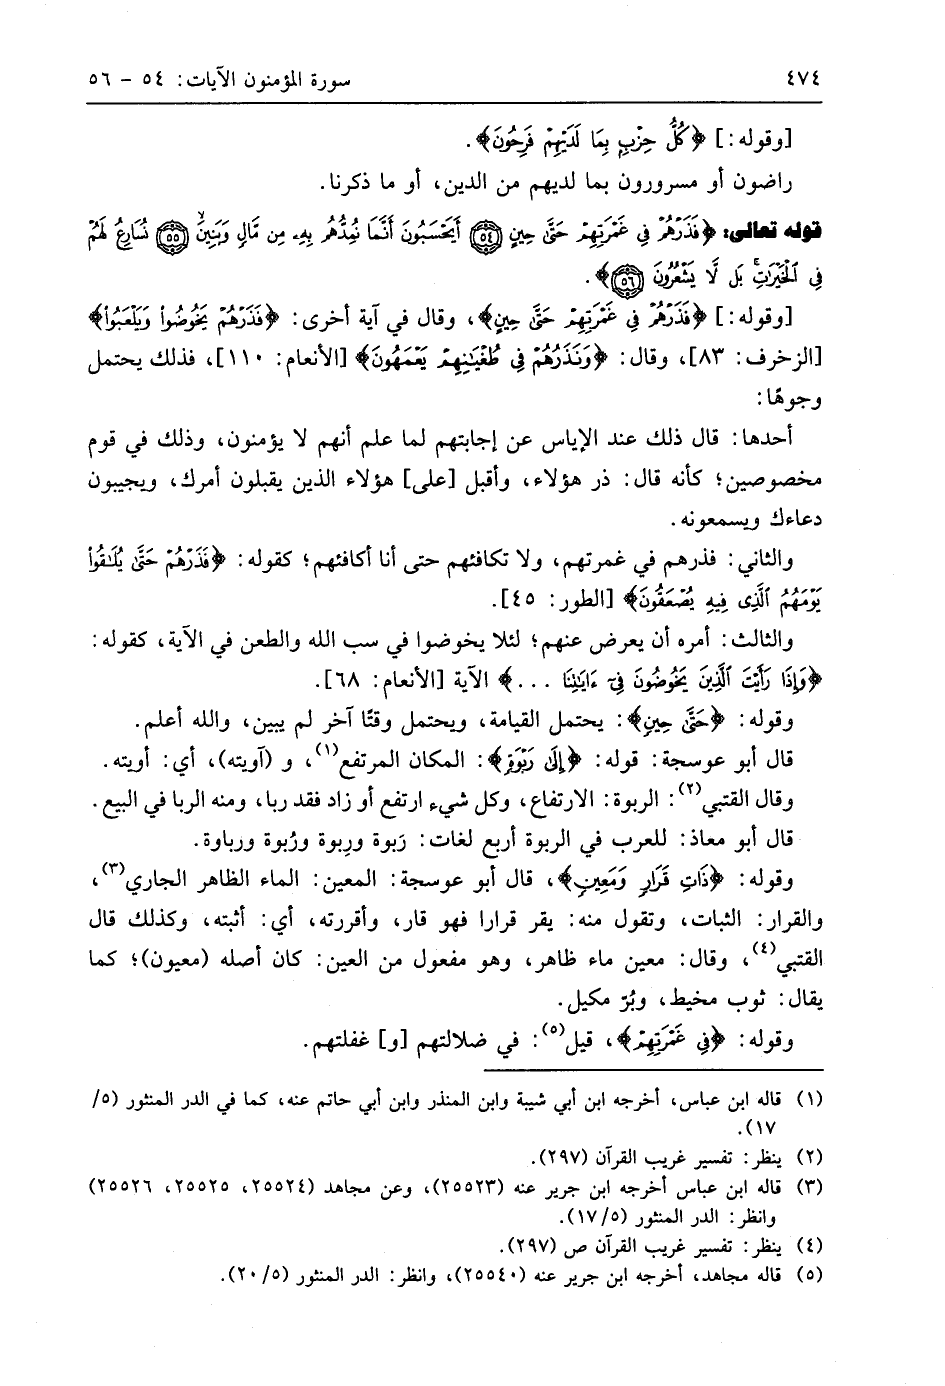 ٤٧٤ سورة المؤمنون الآيات: ٥٤ - ٥٦
[وقوله:] ﴿كُلُّ حِزْبٍ بِمَا لَدَيْهِمْ فَرِحُونَ﴾.
راضون أو مسرورون بما لديهم من الدين، أو ما ذكرنا.
قوله تعالى: ﴿فَذَرْهُمْ فِي غَمْرَتِهِمْ حَتَّىٰ حِينٍ ۝٥٤ أَيَحْسَبُونَ أَنَّمَا نُمِدُّهُم بِهِۦ مِن مَّالٍ وَبَنِينَ ۝٥٥ نُسَارِعُ لَهُمْ
فِي ٱلْخَيْرَٰتِ ۚ بَل لَّا يَشْعُرُونَ ۝٥٦﴾.
[وقوله:] ﴿فَذَرْهُمْ فِي غَمْرَتِهِمْ حَتَّىٰ حِينٍ﴾، وقال في آية أخرى: ﴿فَذَرْهُمْ يَخُوضُوا۟ وَيَلْعَبُوا۟﴾
[الزخرف: ٨٣]، وقال: ﴿وَنَذَرُهُمْ فِي طُغْيَٰنِهِمْ يَعْمَهُونَ﴾ [الأنعام: ١١٠]، فذلك يحتمل
وجوهًا:
أحدها: قال ذلك عند الإياس عن إجابتهم لما علم أنهم لا يؤمنون، وذلك في قوم
مخصوصين؛ كأنه قال: ذر هؤلاء، وأقبل [على] هؤلاء الذين يقبلون أمرك، ويجيبون
دعاءك ويسمعونه.
والثاني: فذرهم في غمرتهم، ولا تكافئهم حتى أنا أكافئهم؛ كقوله: ﴿فَذَرْهُمْ حَتَّىٰ يُلَٰقُوا۟
يَوْمَهُمُ ٱلَّذِي فِيهِ يُصْعَقُونَ﴾ [الطور: ٤٥].
والثالث: أمره أن يعرض عنهم؛ لئلا يخوضوا في سب الله والطعن في الآية، كقوله:
﴿وَإِذَا رَأَيْتَ ٱلَّذِينَ يَخُوضُونَ فِيٓ ءَايَٰتِنَا ...﴾ الآية [الأنعام: ٦٨].
وقوله: ﴿حَتَّىٰ حِينٍ﴾: يحتمل القيامة، ويحتمل وقتًا آخر لم يبين، والله أعلم.
قال أبو عوسجة: قوله: ﴿إِلَىٰ رَبْوَةٍ﴾: المكان المرتفع(١)، و (آويته)، أي: أويته.
وقال القتبي(٢): الربوة: الارتفاع، وكل شيء ارتفع أو زاد فقد ربا، ومنه الربا في البيع.
قال أبو معاذ: للعرب في الربوة أربع لغات: رَبوة ورِبوة ورُبوة ورباوة.
وقوله: ﴿ذَاتِ قَرَارٍ وَمَعِينٍ﴾، قال أبو عوسجة: المعين: الماء الظاهر الجاري(٣)،
والقرار: الثبات، وتقول منه: يقر قرارا فهو قار، وأقررته، أي: أثبته، وكذلك قال
القتبي(٤)، وقال: معين ماء ظاهر، وهو مفعول من العين: كان أصله (معيون)؛ كما
يقال: ثوب مخيط، وبُرّ مكيل.
وقوله: ﴿فِي غَمْرَتِهِمْ﴾، قيل(٥): في ضلالتهم [و] غفلتهم.
(١) قاله ابن عباس، أخرجه ابن أبي شيبة وابن المنذر وابن أبي حاتم عنه، كما في الدر المنثور (٥/
١٧).
(٢) ينظر: تفسير غريب القرآن (٢٩٧).
(٣) قاله ابن عباس أخرجه ابن جرير عنه (٢٥٥٢٣)، وعن مجاهد (٢٥٥٢٤، ٢٥٥٢٥، ٢٥٥٢٦)
وانظر: الدر المنثور (١٧/٥).
(٤) ينظر: تفسير غريب القرآن ص (٢٩٧).
(٥) قاله مجاهد، أخرجه ابن جرير عنه (٢٥٥٤٠)، وانظر: الدر المنثور (٢٠/٥).